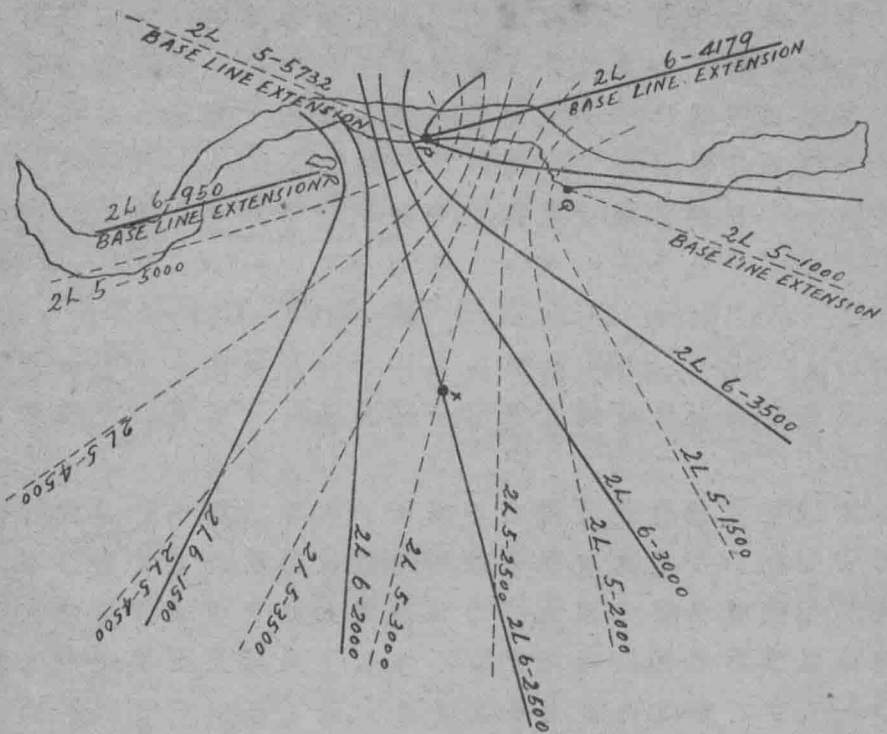 2L 5-5732
BASE LINE EXTENSION
2L 6-4179
BASE LINE EXTENSION
P
R
Q
2L 6-950
BASE LINE EXTENSION
2L 5-1000
BASE LINE EXTENSION
2L 5-5000
2L 6-3500
X
2L 5-4500
2L 5-1500
2L 6-3000
2L 5-4500
2L 6-1500
2L 5-3500
2L 6-2000
2L 5-3000
2L 5-2500
2L 5-2000
2L 6-2500